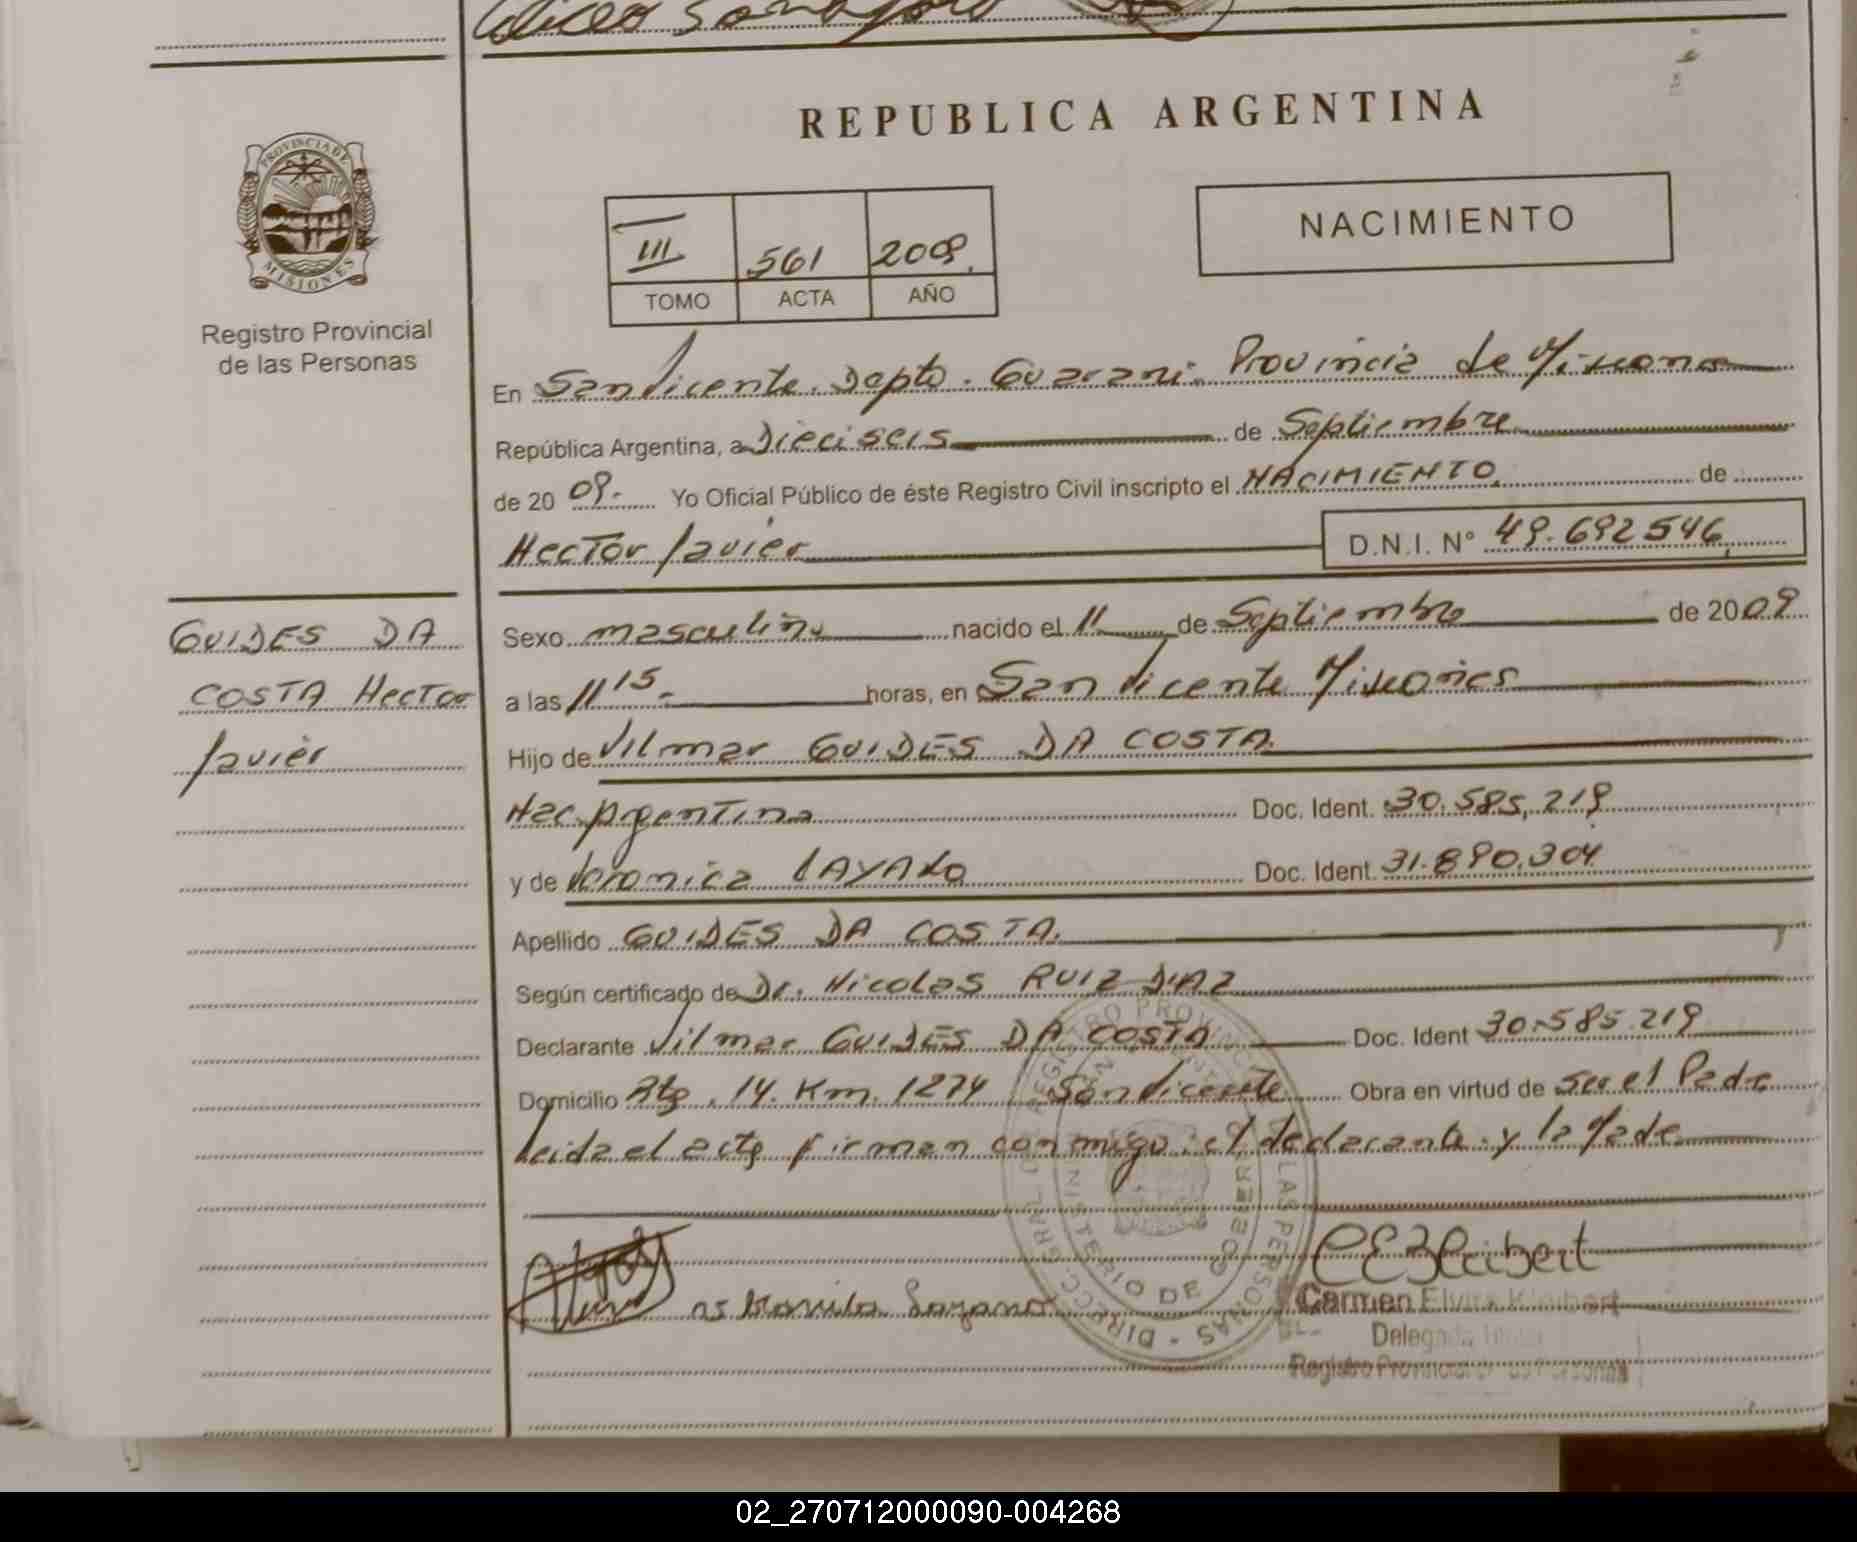 REPUBLICA ARGENTINA
PROVINCIA DE
MISIONES
Registro Provincial
de las Personas
III 561 2009
TOMO ACTA AÑO
NACIMIENTO
En San Vicente. Depto. Guarani. Provincia de Misiones
República Argentina, a Dieciseis de Septiembre
de 20 09. Yo Oficial Público de éste Registro Civil inscripto el NACIMIENTO de
Hector Javier D.N.I. N° 49.692546
GUIDES DA
COSTA Hector
Javier
Sexo masculino nacido el 11 de Septiembre de 2009
a las 11 15. horas, en San Vicente Misiones
Hijo de Vilmar GUIDES DA COSTA
Nac. Argentina Doc. Ident. 30.585.219
y de Veronica Doc. Ident. 31.890.304
Apellido GUIDES DA COSTA.
Según certificado de Dr. Nicolas RUIZ DIAZ
Declarante Vilmar GUIDES DA COSTA Doc. Ident 30.585.219
Domicilio Rta. 14. Km. 1274 San Vicente Obra en virtud de ser el Padre
Leida el acta firman conmigo el declarante y la Made
Carmen Elvira Kleibert
Registro Provincial de las Personas
02_270712000090-004268